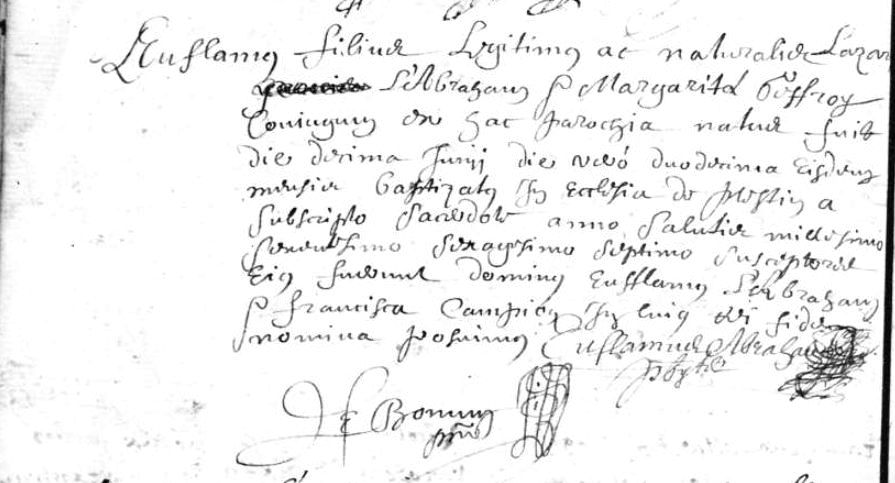 Euflamus filius legitimus ac naturalis Lazar
L'Abraham & Margarita Geffroy
Coniugum ex hac parochia natus fuit
die decima Junij die verò duodecima eisdem
mensis baptizatus in ecclesia de plestin a
subscripto sacerdote anno salutis millesimo
sexentesimo sexagesimo septimo susceptores
eius fuerunt dominus Eufflamus L'Abraham
& francisca Campion in cuius rei fidem
nomina posuimus Eufflamus Abraham
pbyter